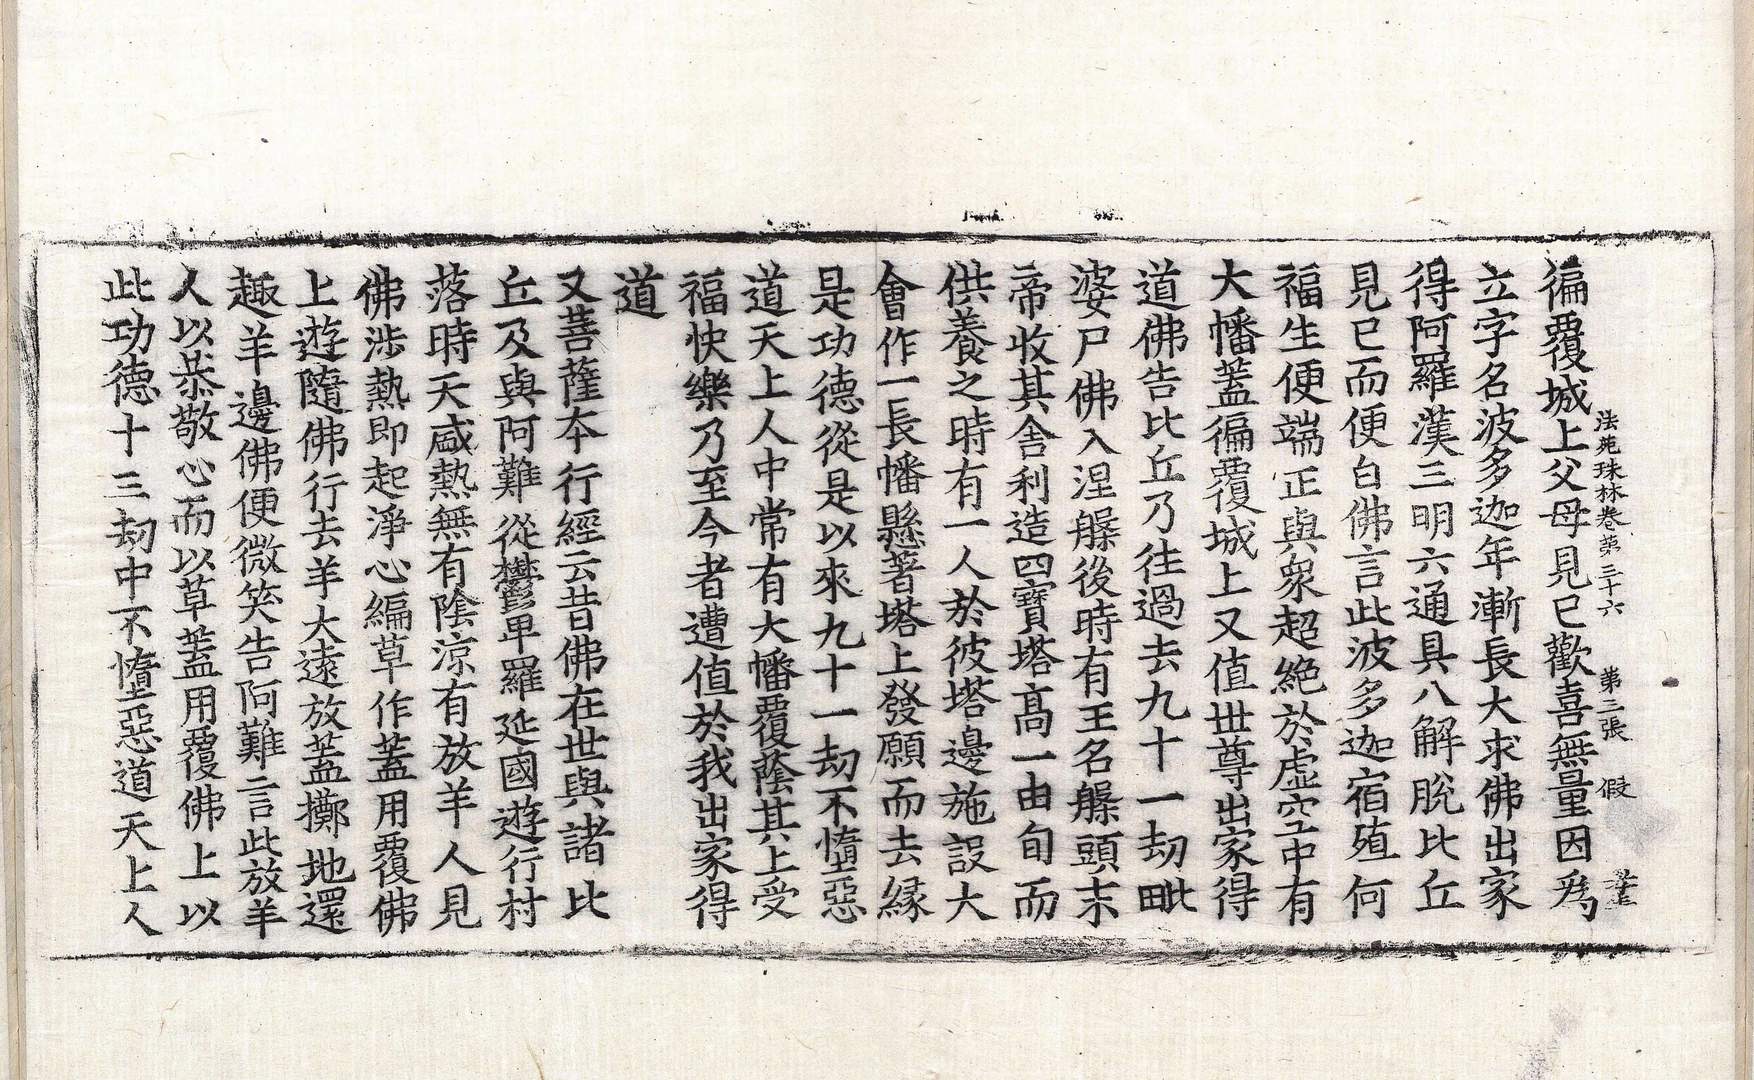 法苑珠林卷第三十六　第三張　假
徧覆城上父母見已歡喜無量因爲
立字名波多迦年漸長大求佛出家
得阿羅漢三明六通具八解脫比丘
見已而便白佛言此波多迦宿殖何
福生便端正與衆超絶於虛空中有
大幡蓋徧覆城上又值世尊出家得
道佛告比丘乃往過去九十一劫毗
婆尸佛入涅槃後時有王名槃頭末
帝收其舍利造四寶塔高一由旬而
供養之時有一人於彼塔邊施設大
會作一長幡懸著塔上發願而去緣
是功德從是以來九十一劫不墮惡
道天上人中常有大幡覆蔭其上受
福快樂乃至今者遭值於我出家得
道
又菩薩本行經云昔佛在世與諸比
丘及與阿難從鬱卑羅延國遊行村
落時天盛熱無有陰涼有放羊人見
佛涉熱即起淨心編草作蓋用覆佛
上遊隨佛行去羊大遠放蓋擲地還
趣羊邊佛便微笑告阿難言此放羊
人以恭敬心而以草蓋用覆佛上以
此功德十三劫中不墮惡道天上人